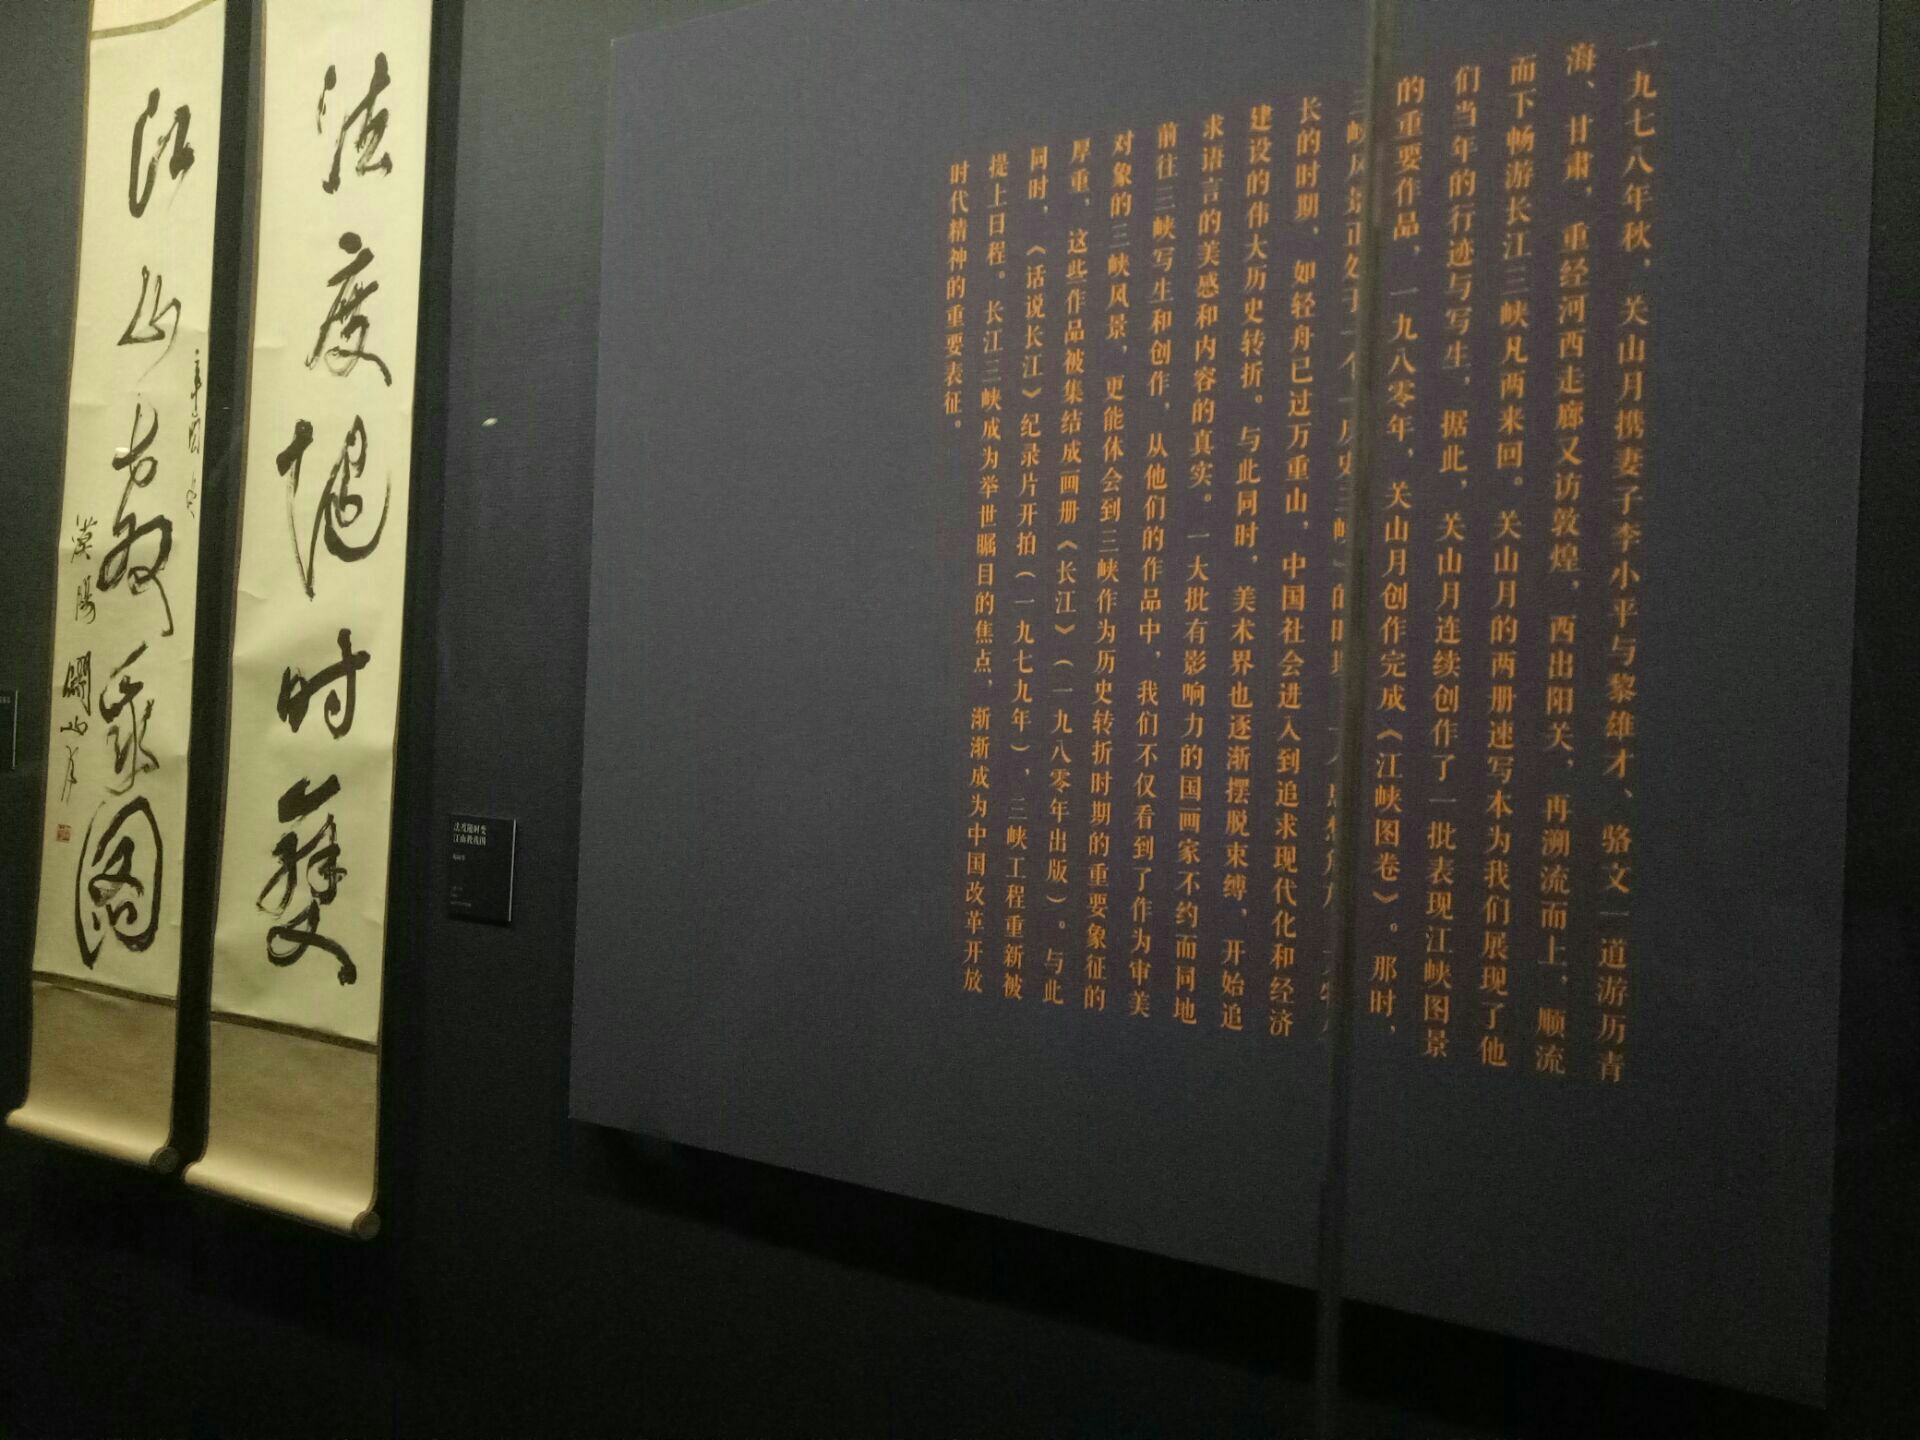 一九七八年秋，关山月携妻子李小平与黎雄才、骆文一道游历青
海、甘肃，重经河西走廊又访敦煌，西出阳关，再溯流而上，顺流
而下畅游长江三峡凡两来回。关山月的两册速写本为我们展现了他
们当年的行迹与写生，据此，关山月连续创作了一批表现江峡图景
的重要作品，一九八零年，关山月创作完成《江峡图卷》。那时，
三峡风景正处于一个
长的时期，如轻舟已过万重山，中国社会进入到追求现代化和经济
建设的伟大历史转折。与此同时，美术界也逐渐摆脱束缚，开始追
求语言的美感和内容的真实。一大批有影响力的国画家不约而同地
前往三峡写生和创作，从他们的作品中，我们不仅看到了作为审美
对象的三峡风景，更能体会到三峡作为历史转折时期的重要象征的
厚重，这些作品被集结成画册《长江》（一九八零年出版）。与此
同时，《话说长江》纪录片开拍（一九七九年），三峡工程重新被
提上日程。长江三峡成为举世瞩目的焦点，渐渐成为中国改革开放
时代精神的重要表征。
法度随时变
江山教我图
法度随时变
江山教我图
漠陽關山月